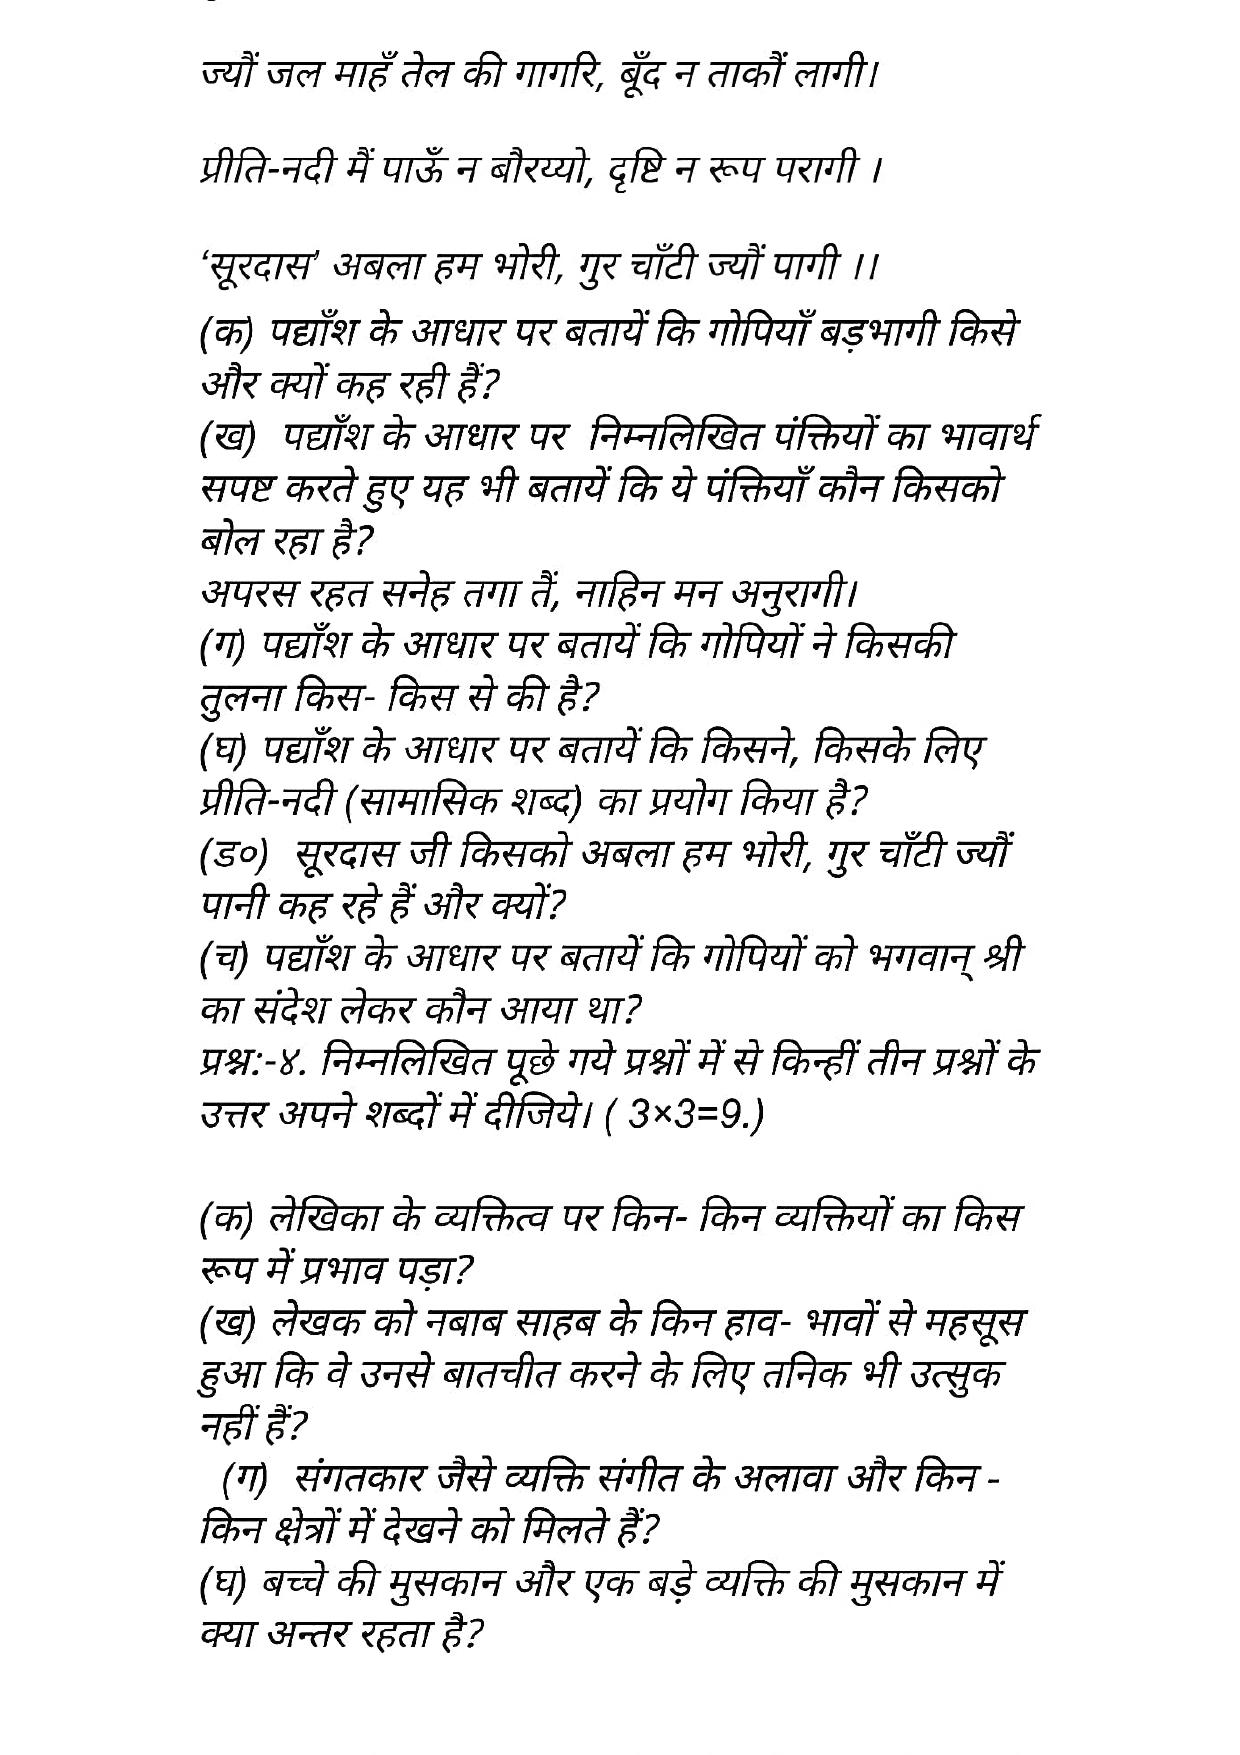 ज्यौं जल माहँ तेल की गागरि, बूँद न ताकौं लागी।
प्रीति-नदी मैं पाऊँ न बौरय्यो, दृष्टि न रूप परागी ।
‘सूरदास’ अबला हम भोरी, गुर चाँटी ज्यौं पागी ।।
(क) पद्याँश के आधार पर बतायें कि गोपियाँ बड़भागी किसे
और क्यों कह रही हैं?
(ख)  पद्याँश के आधार पर  निम्नलिखित पंक्तियों का भावार्थ
सपष्ट करते हुए यह भी बतायें कि ये पंक्तियाँ कौन किसको
बोल रहा है?
अपरस रहत सनेह तगा तैं, नाहिन मन अनुरागी।
(ग) पद्याँश के आधार पर बतायें कि गोपियों ने किसकी
तुलना किस- किस से की है?
(घ) पद्याँश के आधार पर बतायें कि किसने, किसके लिए
प्रीति-नदी (सामासिक शब्द) का प्रयोग किया है?
(ड०)  सूरदास जी किसको अबला हम भोरी, गुर चाँटी ज्यौं
पानी कह रहे हैं और क्यों?
(च) पद्याँश के आधार पर बतायें कि गोपियों को भगवान् श्री
का संदेश लेकर कौन आया था?
प्रश्न:-४. निम्नलिखित पूछे गये प्रश्नों में से किन्हीं तीन प्रश्नों के
उत्तर अपने शब्दों में दीजिये। ( 3×3=9.)
(क) लेखिका के व्यक्तित्व पर किन- किन व्यक्तियों का किस
रूप में प्रभाव पड़ा?
(ख) लेखक को नबाब साहब के किन हाव- भावों से महसूस
हुआ कि वे उनसे बातचीत करने के लिए तनिक भी उत्सुक
नहीं हैं?
(ग)  संगतकार जैसे व्यक्ति संगीत के अलावा और किन -
किन क्षेत्रों में देखने को मिलते हैं?
(घ) बच्चे की मुसकान और एक बड़े व्यक्ति की मुसकान में
क्या अन्तर रहता है?